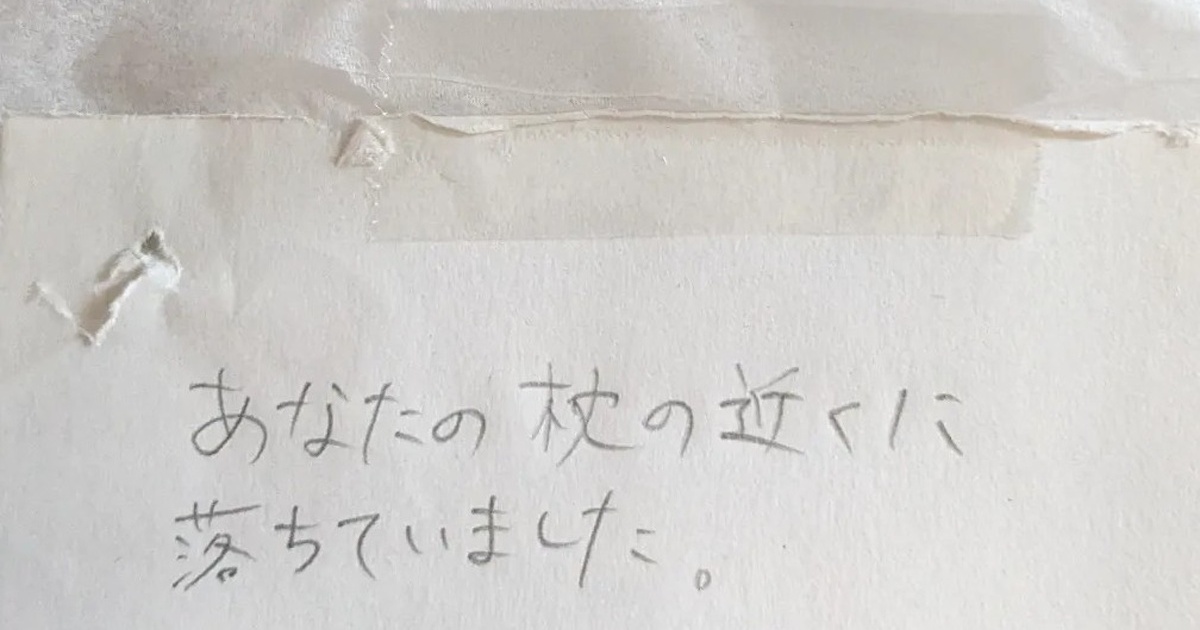 あなたの枕の近くに
落ちていました。